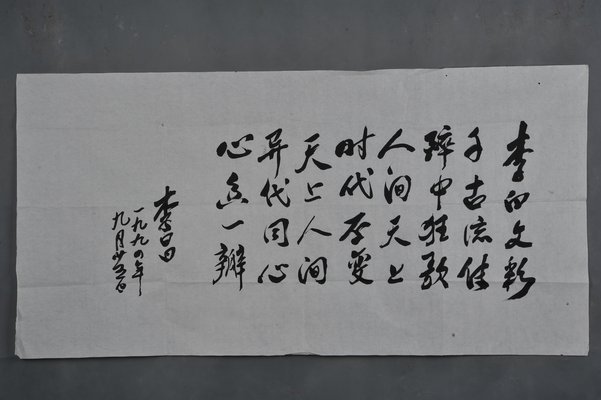 李白文彩
千古流佳
醉中狂歌
人间天上
时代变
天上人间
异代同心
心香一瓣
李昌
一九九四年
九月廿五日